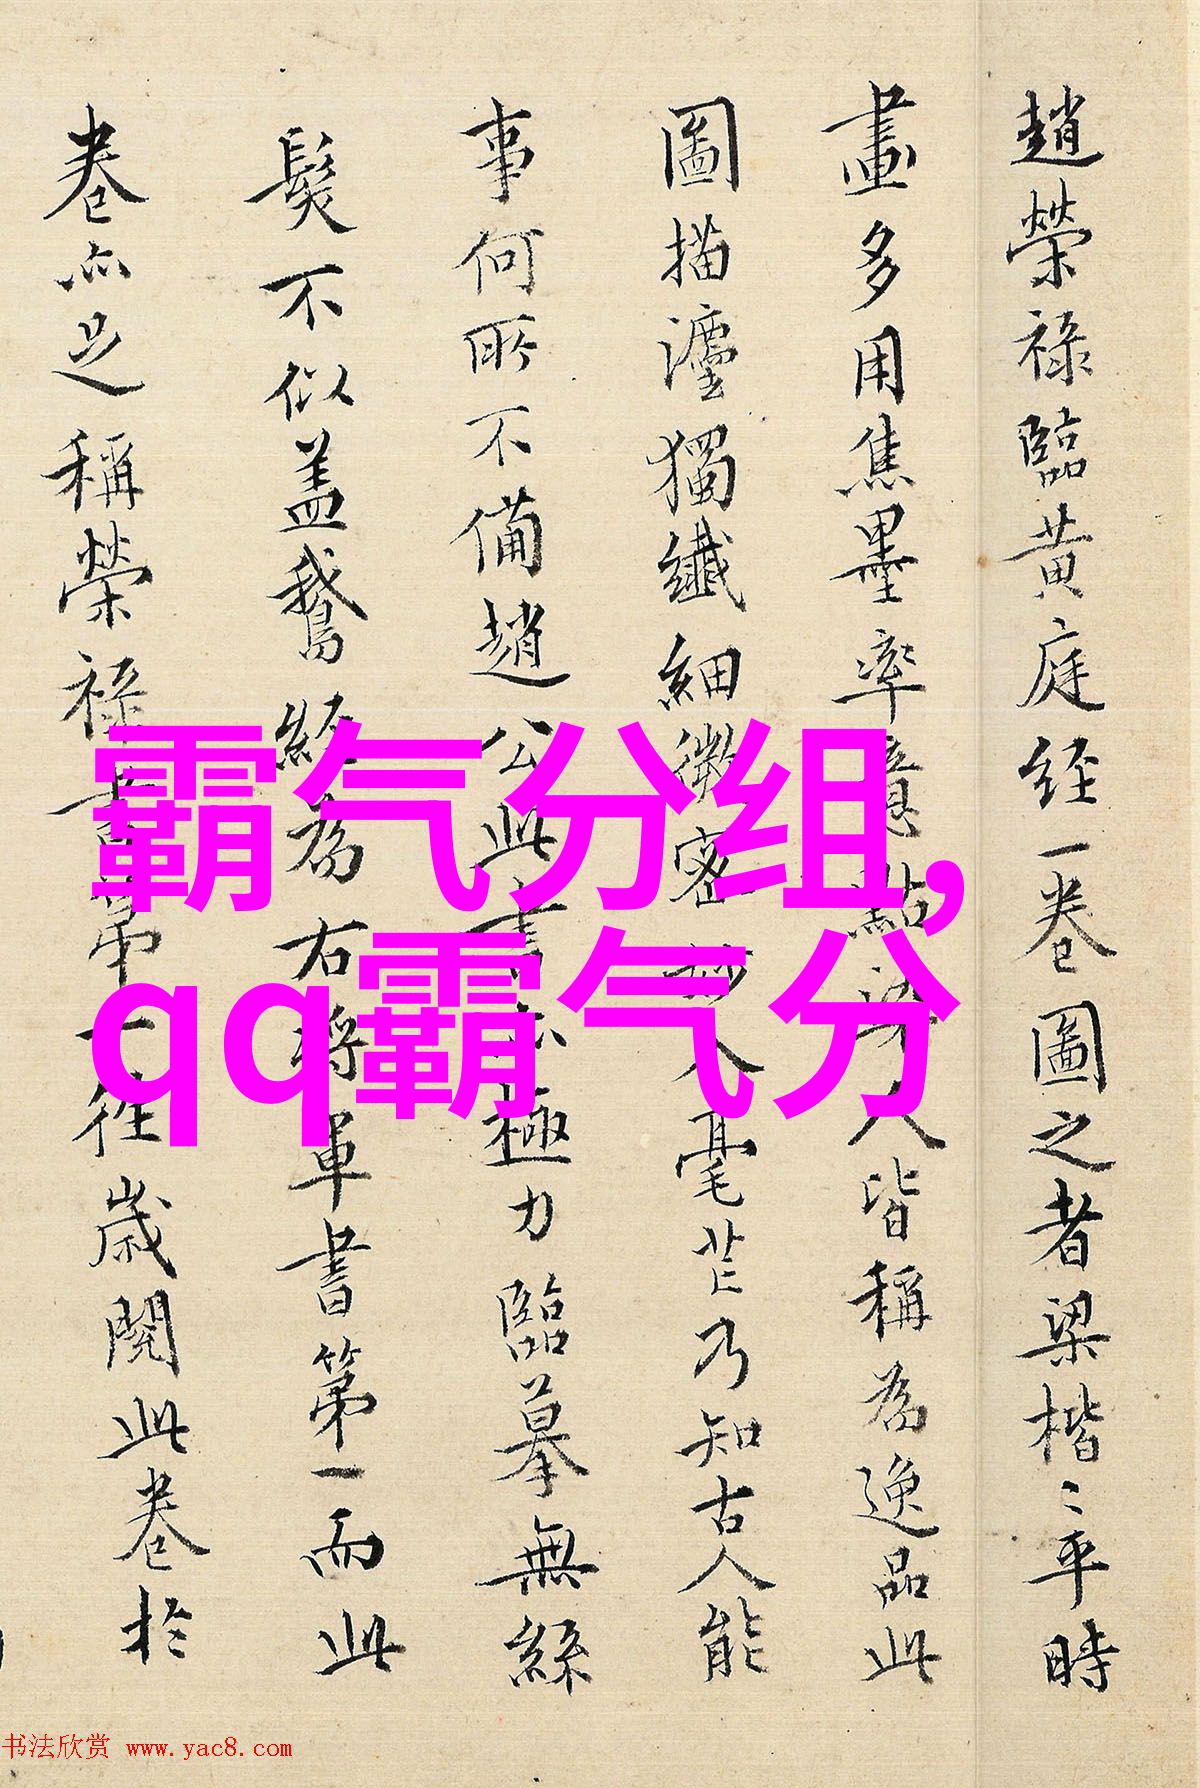 趙榮祿臨黄庭经一卷圖之者梁楷〻平時
畫多用焦墨率意點染人皆稱為逸品此
圖描瀍獨纖細微密妙入毫芒乃知古人能
事何所不備趙公此書亦極力臨摹無絲
髮不似盖鵞經為右将軍書第一而此
卷亦足稱榮祿書第一往歲閱此卷於
霸气分组,
qq霸气分
书法欣赏 www.yac8.com